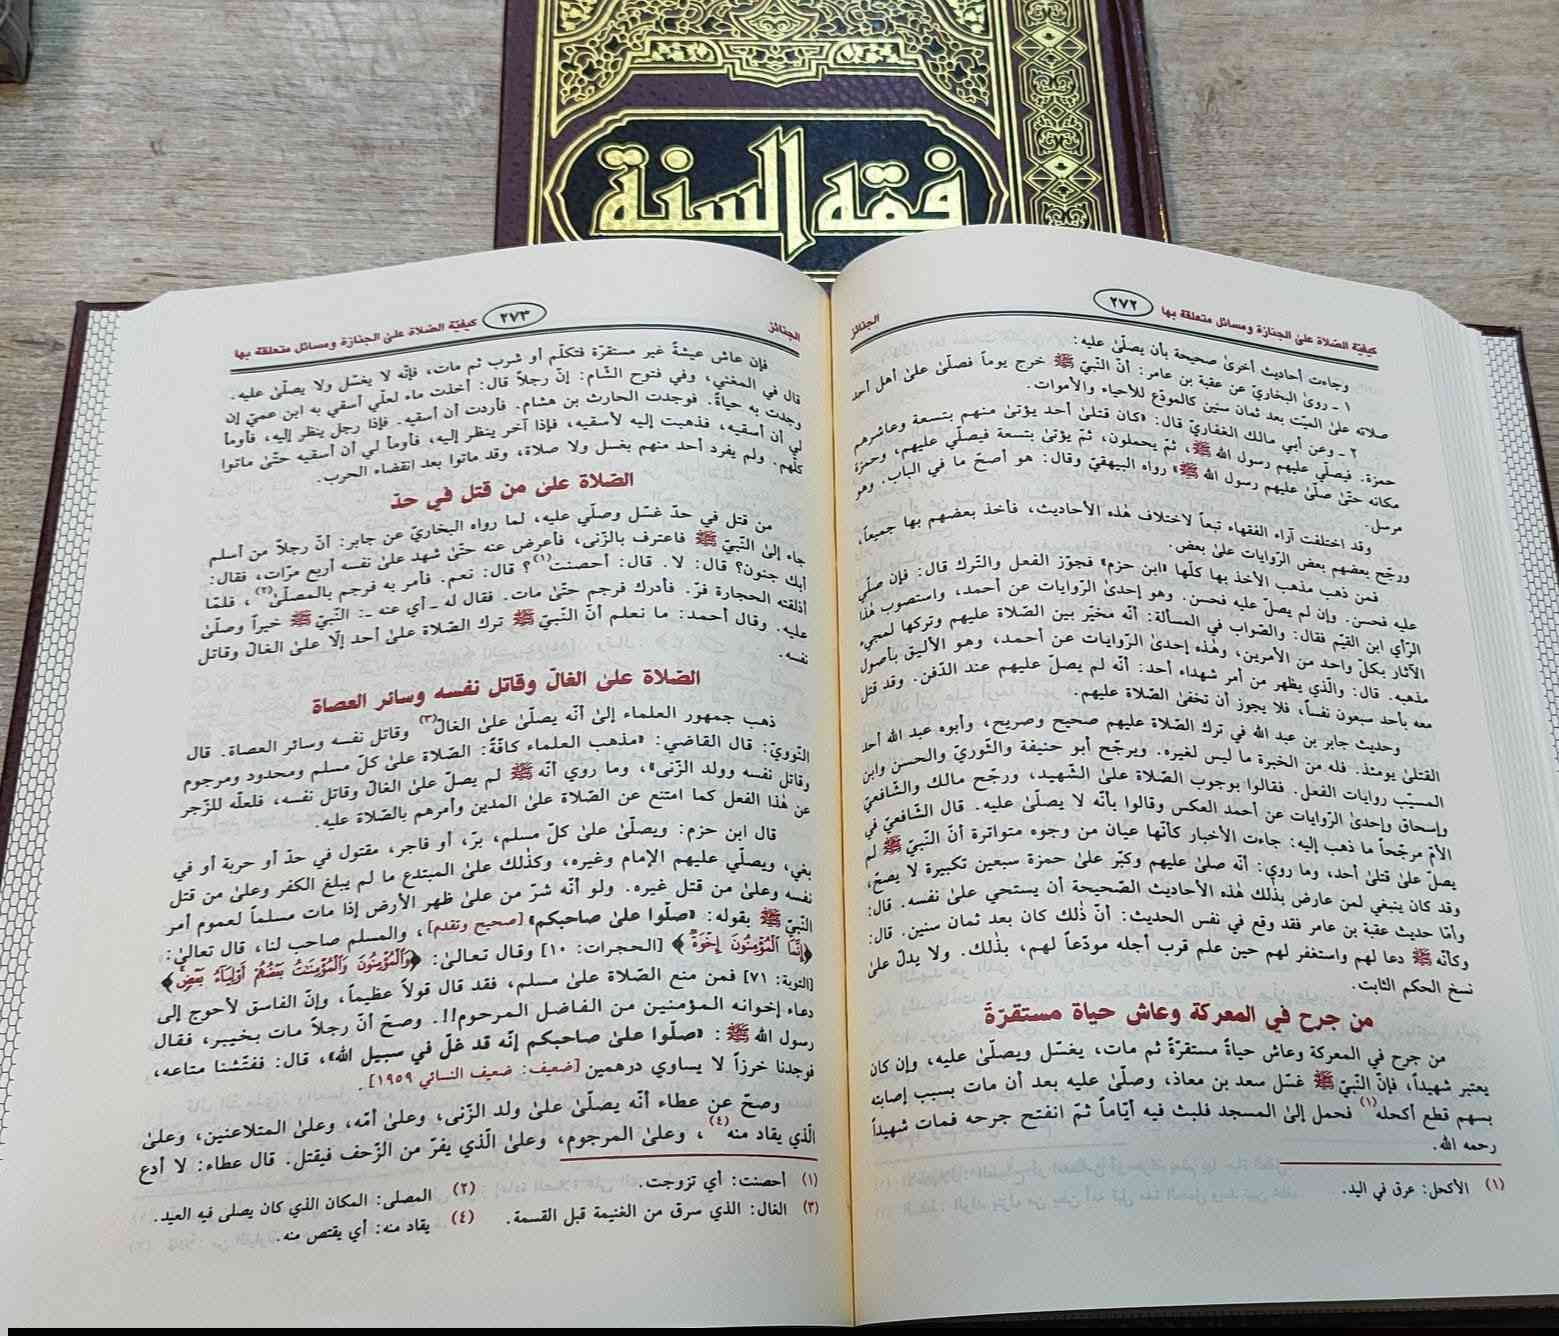 فقه السنة
كيفيّة الصّلاة على الجنازة ومسائل متعلقة بها
٢٧٢
الجنائز
وجاءت أحاديث أخرىٰ صحيحة بأن يصلّىٰ عليه:
١ ـ روىٰ البخاريّ عن عقبة بن عامر: أنّ النّبيّ ﷺ خرج يوماً فصلّىٰ علىٰ أهل أحد
صلاته علىٰ الميّت بعد ثمان سنين كالمودّع للأحياء والأموات.
٢ ـ وعن أبي مالك الغفاريّ قال: «كان قتلىٰ أحد يؤتىٰ منهم بتسعة وعاشرهم
حمزة. فيصلّي عليهم رسول الله ﷺ، ثمّ يحملون، ثمّ يؤتىٰ بتسعة فيصلّي عليهم، وحمزة
مكانه حتّىٰ صلّىٰ عليهم رسول الله ﷺ» رواه البيهقيّ وقال: هو أصحّ ما في الباب. وهو
مرسل.
وقد اختلفت آراء الفقهاء تبعاً لاختلاف هٰذه الأحاديث، فأخذ بعضهم بها جميعاً،
ورجّح بعضهم بعض الرّوايات علىٰ بعض.
فمن ذهب مذهب الأخذ بها كلّها «ابن حزم» فجوّز الفعل والتّرك قال: فإن صلّي
عليه فحسن. وإن لم يصلّ عليه فحسن. وهو إحدىٰ الرّوايات عن أحمد، واستصوب هٰذا
الرّأي ابن القيّم فقال: والصّواب في المسألة: أنّه مخيّر بين الصّلاة عليهم وتركها لمجيء
الآثار بكلّ واحد من الأمرين، وهٰذه إحدىٰ الرّوايات عن أحمد، وهو الأليق بأصول
مذهبه. قال: والّذي يظهر من أمر شهداء أحد: أنّه لم يصلّ عليهم عند الدّفن. وقد قتل
معه بأحد سبعون نفساً، فلا يجوز أن تخفىٰ الصّلاة عليهم.
وحديث جابر بن عبد الله في ترك الصّلاة عليهم صحيح وصريح، وأبوه عبد الله أحد
القتلىٰ يومئذ. فله من الخبرة ما ليس لغيره. ويرجّح أبو حنيفة والثّوريّ والحسن وابن
المسيّب روايات الفعل. فقالوا بوجوب الصّلاة علىٰ الشّهيد، ورجّح مالك والشّافعيّ
وإسحاق وإحدىٰ الرّوايات عن أحمد العكس وقالوا بأنّه لا يصلّىٰ عليه. قال الشّافعيّ في
الأمّ مرجّحاً ما ذهب إليه: جاءت الأخبار كأنّها عيان من وجوه متواترة أنّ النّبيّ ﷺ لم
يصلّ علىٰ قتلىٰ أحد، وما روي: أنّه صلىٰ عليهم وكبّر علىٰ حمزة سبعين تكبيرة لا يصحّ،
وقد كان ينبغي لمن عارض بذٰلك هٰذه الأحاديث الصّحيحة أن يستحي علىٰ نفسه. قال:
وأمّا حديث عقبة بن عامر فقد وقع في نفس الحديث: أنّ ذٰلك كان بعد ثمان سنين. قال:
وكأنّه ﷺ دعا لهم واستغفر لهم حين علم قرب أجله مودّعاً لهم، بذٰلك. ولا يدلّ علىٰ
نسخ الحكم الثابت.
من جرح في المعركة وعاش حياة مستقرّةَ
من جرح في المعركة وعاش حياةً مستقرّةً ثم مات، يغسّل ويصلّىٰ عليه، وإن كان
يعتبر شهيداً، فإنّ النّبيّ ﷺ غسّل سعد بن معاذ، وصلّىٰ عليه بعد أن مات بسبب إصابته
بسهم قطع أكحله(١) فحمل إلىٰ المسجد فلبث فيه أيّاماً ثمّ انفتح جرحه فمات شهيداً
رحمه الله.
(١) الأكحل: عرق في اليد.
الجنائز
٢٧٣
كيفيّة الصّلاة على الجنازة ومسائل متعلقة بها
فإن عاش عيشةً غير مستقرّة فتكلّم أو شرب ثم مات، فإنّه لا يغسّل ولا يصلّىٰ عليه.
قال في المغني، وفي فتوح الشّام: إنّ رجلاً قال: أخذت ماء لعلّي أسقي به ابن عميّ إن
وجدت به حياةً. فوجدت الحارث بن هشام. فأردت أن أسقيه. فإذا رجل ينظر إليه، فأومأ
لي أن أسقيه، فذهبت إليه لأسقيه، فإذا آخر ينظر إليه، فأومأ لي أن أسقيه حتّىٰ ماتوا
كلّهم. ولم يفرد أحد منهم بغسل ولا صلاة، وقد ماتوا بعد انقضاء الحرب.
الصّلاة علىٰ من قتل في حدّ
من قتل في حدّ غسّل وصلّي عليه، لما رواه البخاريّ عن جابر: أنّ رجلاً من أسلم
جاء إلىٰ النّبيّ ﷺ فاعترف بالزّنى، فأعرض عنه حتّىٰ شهد علىٰ نفسه أربع مرّات، فقال:
أبك جنون؟ قال: لا. قال: أحصنت(١)؟ قال: نعم. فأمر به فرجم بالمصلّىٰ(٢)، فلمّا
أذلقته الحجارة فرّ. فأدرك فرجم حتّىٰ مات. فقال له ـ أي عنه ـ: النّبيّ ﷺ خيراً وصلّىٰ
عليه. وقال أحمد: ما نعلم أنّ النّبيّ ﷺ ترك الصّلاة علىٰ أحد إلّا علىٰ الغالّ وقاتل
نفسه.
الصّلاة علىٰ الغالّ وقاتل نفسه وسائر العصاة
ذهب جمهور العلماء إلىٰ أنّه يصلّىٰ علىٰ الغالّ(٣) وقاتل نفسه وسائر العصاة. قال
النّوويّ: قال القاضي: «مذهب العلماء كافّةً: الصّلاة علىٰ كلّ مسلم ومحدود ومرجوم
وقاتل نفسه وولد الزّنى»، وما روي أنّه ﷺ لم يصلّ علىٰ الغالّ وقاتل نفسه، فلعلّه للزّجر
عن هٰذا الفعل كما امتنع عن الصّلاة علىٰ المدين وأمرهم بالصّلاة عليه.
قال ابن حزم: ويصلّىٰ علىٰ كلّ مسلم، برّ، أو فاجر، مقتول في حدّ أو حربة أو في
بغي، ويصلّي عليهم الإمام وغيره، وكذٰلك علىٰ المبتدع ما لم يبلغ الكفر وعلىٰ من قتل
نفسه وعلىٰ من قتل غيره. ولو أنّه شرّ من علىٰ ظهر الأرض إذا مات مسلماً لعموم أمر
النّبيّ ﷺ بقوله: «صلّوا علىٰ صاحبكم» [صحيح وتقدم]، والمسلم صاحب لنا، قال تعالىٰ:
﴿إِنَّمَا ٱلْمُؤْمِنُونَ إِخْوَةٌ﴾ [الحجرات: ١٠] وقال تعالىٰ: ﴿وَٱلْمُؤْمِنُونَ وَٱلْمُؤْمِنَٰتُ بَعْضُهُمْ أَوْلِيَآءُ بَعْضٍ﴾
[التوبة: ٧١] فمن منع الصّلاة علىٰ مسلم، فقد قال قولاً عظيماً، وإنّ الفاسق لأحوج إلىٰ
دعاء إخوانه المؤمنين من الفاضل المرحوم!!. وصحّ أنّ رجلاً مات بخيبر، فقال
رسول الله ﷺ: «صلّوا علىٰ صاحبكم إنّه قد غلّ في سبيل الله»، قال: ففتّشنا متاعه،
فوجدنا خرزاً لا يساوي درهمين [ضعيف: ضعيف النسائي ١٩٥٩].
وصحّ عن عطاء أنّه يصلّىٰ علىٰ ولد الزّنى، وعلىٰ أمّه، وعلىٰ المتلاعنين، وعلىٰ
الّذي يقاد منه(٤)، وعلىٰ المرجوم، وعلىٰ الّذي يفرّ من الزّحف فيقتل. قال عطاء: لا أدع
(١) أحصنت: أي تزوجت. (٢) المصلى: المكان الذي كان يصلى فيه العيد.
(٣) الغال: الذي سرق من الغنيمة قبل القسمة. (٤) يقاد منه: أي يقتص منه.